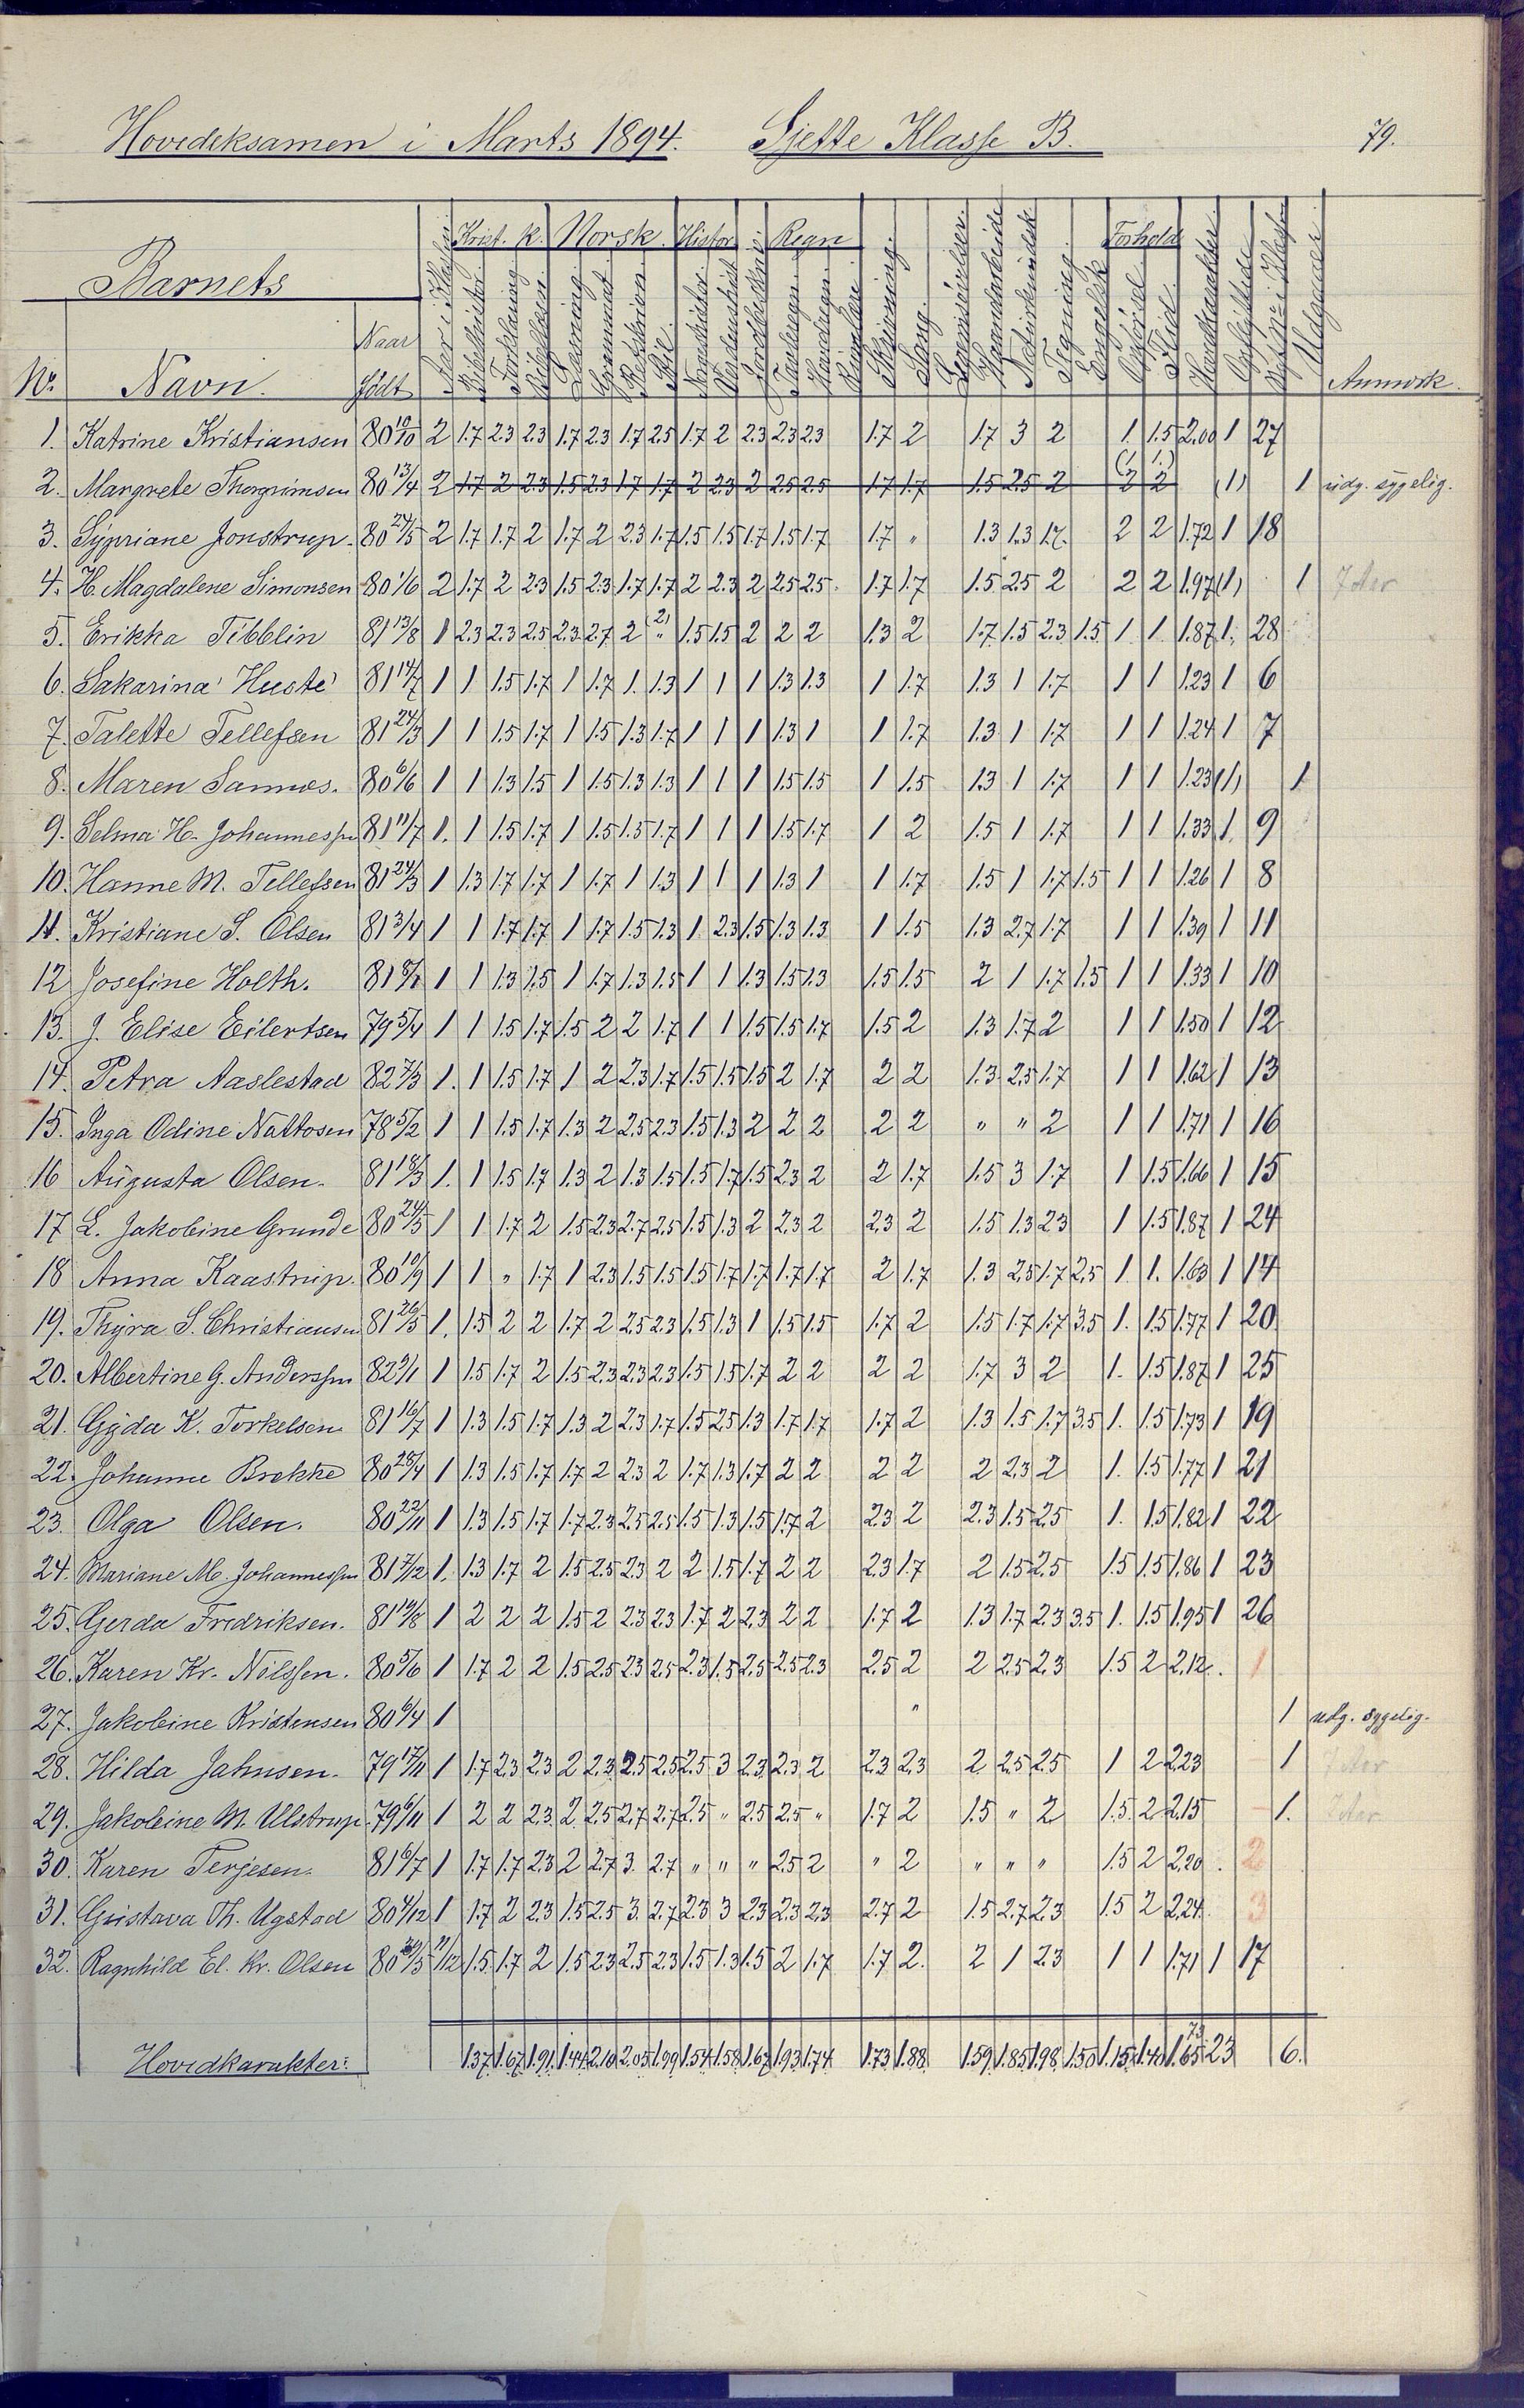 Hovedeksamen i Marts 1894. Sjette Klasse B. 79.
Krist. k. Norsk. Histor. Regn Forhold
Barnets
Aar i Klassen Bibelhistor. Forklaring Bibellæsn. Læsning Grammat. Stil. Verdenshist. Tavleregn. Skrivning. Sang. Haandarbeide Tegning. Engelsk Flid. Hovedkarakter Udgaaet
Nr. Navn. Naar født Anmærk.
1. Katrine Kristiansen 80 19/10 2 1.7 2.3 2.3 1.7 2.3 1.7 2.5 1.7 2 2.3 2.3 2.3 1.7 2 1.7 3 2 1. 1.5 2.00 1 27
2. Margrete Thorgrimsen 80 13/4 2 1.7 2 2.3 1.5 2.3 1.7 1.7 2 2.3 2 2.5 2.5 1.7 1.7 1.5 2.5 2 2 2 (1) 1 udg. sygelig.
3. Sypriane Jonstrup. 80 24/5 2 1.7 1.7 2 1.7 2 2.3 1.7 1.5 1.5 1.7 1.5 1.7 1.7 " 1.3 1.3 1.7 2 2 1.72 1 18
4. H. Magdalene Simonsen 80 1/6 2 1.7 2 2.3 1.5 2.3 1.7 1.7 2 2.3 2 2.5 2.5 1.7 1.7 1.5 2.5 2 2 2 1.97 (1) 1 7 Aar
5. Erikka Tibblin 81 13/8 1 2.3 2.3 2.5 2.3 2.7 2 " 1.5 1.5 2 2 2 1.3 2 1.7 1.5 2.3 1.5 1 1 1.87 1. 28
6. Sakarina Husté 81 14/7 1 1 1.5 1.7 1 1.7 1. 1.3 1 1 1 1.3 1.3 1 1.7 1.3 1 1.7 1 1 1.23 1 6
7. Talette Tellefsen 81 24/3 1 1 1.5 1.7 1 1.5 1.3 1.7 1 1 1 1.3 1 1 1.7 1.3 1 1.7 1 1 1.24 1 7
8. Maren Sannes. 80 6/6 1 1 1.3 1.5 1 1.5 1.3 1.3 1 1 1 1.5 1.5 1 1.5 1.3 1 1.7 1 1 1.23 (1) 1
9. Selma H. Johannessen 81 11/7 1. 1 1.5 1.7 1 1.5 1.5 1.7 1 1 1 1.5 1.7 1 2 1.5 1 1.7 1 1 1.33 1. 9
10. Hanne M. Tellefsen 81 24/3 1 1.3 1.7 1.7 1 1.7 1 1.3 1 1 1 1.3 1 1 1.7 1.5 1 1.7 1.5 1 1 1.26 1 8
11. Kristiane S. Olsen 81 3/4 1 1 1.7 1.7 1 1.7 1.5 1.3 1 2.3 1.5 1.3 1.3 1 1.5 1.3 2.7 1.7 1 1 1.39 1 11
12 Josefine Holth. 81 1 1 1.3 1.5 1 1.7 1.3 1.5 1 1 1.3 1.5 1.3 1.5 1.5 2 1 1.7 1.5 1 1 1.33 1 10
13. J. Elise Eilertsen 79 5/4 1 1 1.5 1.7 1.5 2 2 1.7 1 1 1.5 1.5 1.7 1.5 2 1.3 1.7 2 1 1 1.50 1 12
14. Petra Aaslestad 82 7/3 1. 1 1.5 1.7 1 2 2.3 1.7 1.5 1.5 1.5 2 1.7 2 2 1.3 2.5 1.7 1 1 1.62 1 13
15. Inga Odine Nattosen 78 5/2 1 1 1.5 1.7 1.3 2 2.5 2.3 1.5 1.3 2 2 2 2 2 " " 2 1 1 1.71 1 16
16 Augusta Olsen. 81 18/3 1. 1 1.5 1.7 1.3 2 1.3 1.5 1.5 1.7 1.5 2.3 2 2 1.7 1.5 3 1.7 1 1.5 1.66 1 15
17 L. Jakobine Grunde 80 24/5 1 1 1.7 2 1.5 2.3 2.7 2.5 1.5 1.3 2 2.3 2 2.3 2 1.5 1.3 2.3 1 1.5 1.87 1 24
18 Anna Kaastrup. 80 10/9 1 1 " 1.7 1 2.3 1.5 1.5 1.5 1.7 1.7 1.7 1.7 2 1.7 1.3 2.5 1.7 2.5 1. 1. 1.63 1 14
19. Thyra S. Christiansen 81 26/5 1. 1.5 2 2 1.7 2 2.5 2.3 1.5 1.3 1 1.5 1.5 1.7 2 1.5 1.7 1.7 3.5 1. 1.5 1.77 1 20
20. Albertine G. Anderssen 82 9/1 1 1.5 1.7 2 1.5 2.3 2.3 2.3 1.5 1.5 1.7 2 2 2 2 1.7 3 2 1. 1.5 1.87 1 25
21. Gyda K. Torkelsen 81 16/7 1 1.3 1.5 1.7 1.3 2 2.3 1.7 1.5 2.5 1.3 1.7 1.7 1.7 2 1.3 1.5 1.7 3.5 1. 1.5 1.73 1 19
22. Johanne Brekke 80 28/4 1 1.3 1.5 1.7 1.7 2 2.3 2 1.7 1.3 1.7 2 2 2 2 2 2.3 2 1. 1.5 1.77 1 21
23. Olga Olsen. 80 22/11 1 1.3 1.5 1.7 1.7 2.3 2.5 2.5 1.5 1.3 1.5 1.7 2 2.3 2 2.3 1.5 2.5 1. 1.5 1.82 1 22
24. Mariane M. Johannessen 81 7/12 1. 1.3 1.7 2 1.5 2.5 2.3 2 2 1.5 1.7 2 2 2.3 1.7 2 1.5 2.5 1.5 1.5 1.86 1 23
25. Gerda Fredriksen. 81 19/8 1 2 2 2 1.5 2 2.3 2.3 1.7 2 2.3 2 2 1.7 2 1.3 1.7 2.3 3.5 1. 1.5 1.95 1 26
26. Karen Kr. Nilssen. 80 5/6 1 1.7 2 2 1.5 2.5 2.3 2.5 2.3 1.5 2.5 2.5 2.3 2.5 2 2 2.5 2.3 1.5 2 2.12. 1
27. Jakobine Kristensen 80 6/4 1 " 1 udg. sygelig.
28. Hilda Jahnsen. 79 17/11 1 1.7 2.3 2.3 2 2.3 2.5 2.5 2.5 3 2.3 2.3 2 2.3 2.3 2 2.5 2.5 1 2 2.23 1 7 Aar
29. Jakobine M. Ulstrup. 79 6/11 1 2 2 2.3 2 2.5 2.7 2.7 2.5 " 2.5 2.5 " 1.7 2 1.5 " 2 1.5 2 2.15 1. 7 Aar
30. Karen Terjesen. 81 6/7 1 1.7 1.7 2.3 2 2.7 3. 2.7 " " " 2.5 2 " 2 " " " 1.5 2 2.20. 2
31. Gustava Th. Ugstad 80 4/12 1 1.7 2 2.3 1.5 2.5 3. 2.7 2.3 3 2.3 2.3 2.3 2.7 2 1.5 2.7 2.3 1.5 2 2.24. 3
32. Ragnhild El. Kr. Olsen 80 11/12 1.5 1.7 2 1.5 2.3 2.5 2.3 1.5 1.3 1.5 2 1.7 1.7 2. 2 1 2.3 1 1 1.71 1 17
Hovedkarakter: 1.37 1.67 1.91 1.44 2.10 2.05 1.99 1.54 1.58 1.67 1.93 1.74 1.73 1.88 1.59 1.85 1.98 1.50 1.15 1.40 1.65 23 6.